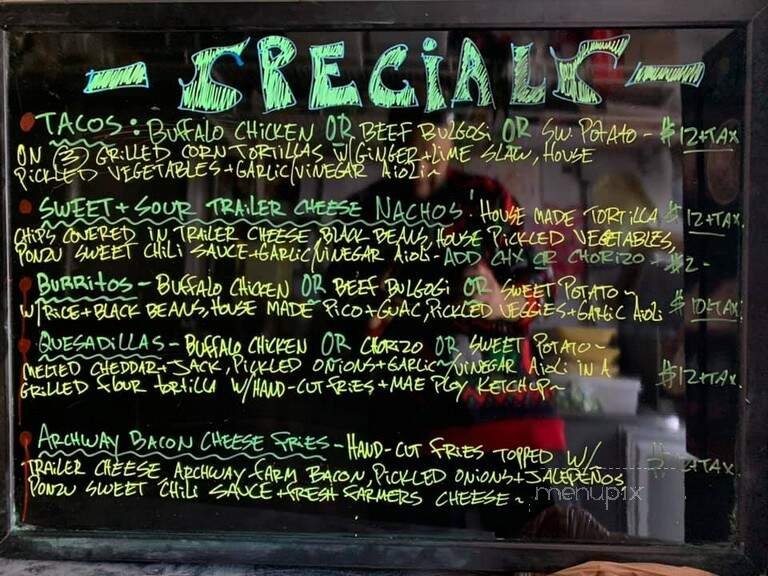 - SPECIALS -
• TACOS: BUFFALO CHICKEN OR BEEF BULGOGI OR SW. POTATO - $12+TAX
ON ③ GRILLED CORN TORTILLAS W/GINGER+LIME SLAW, HOUSE
PICKLED VEGETABLES+GARLIC/VINEGAR AIOLI~
• SWEET+SOUR TRAILER CHEESE NACHOS: HOUSE MADE TORTILLA $12+TAX.
CHIPS COVERED IN TRAILER CHEESE, BLACK BEANS, HOUSE PICKLED VEGETABLES,
PONZU SWEET CHILI SAUCE+GARLIC/VINEGAR AIOLI-ADD CHX OR CHORIZO - $2-
• BURRITOS - BUFFALO CHICKEN OR BEEF BULGOGI OR SWEET POTATO~
W/RICE+BLACK BEANS, HOUSE MADE PICO+GUAC, PICKLED VEGGIES+GARLIC AIOLI $10+TAX.
• QUESADILLAS - BUFFALO CHICKEN OR CHORIZO OR SWEET POTATO~
MELTED CHEDDAR+JACK, PICKLED ONIONS+GARLIC~/VINEGAR AIOLI IN A
GRILLED FLOUR TORTILLA W/HAND-CUT FRIES+MAE PLOY KETCHUP~ $12+TAX.
• ARCHWAY BACON CHEESE FRIES - HAND-CUT FRIES TOPPED W/
TRAILER CHEESE ARCHWAY FARM BACON, PICKLED ONIONS+JALEPEÑOS +TAX.
PONZU SWEET CHILI SAUCE+FRESH FARMERS CHEESE~
menupix